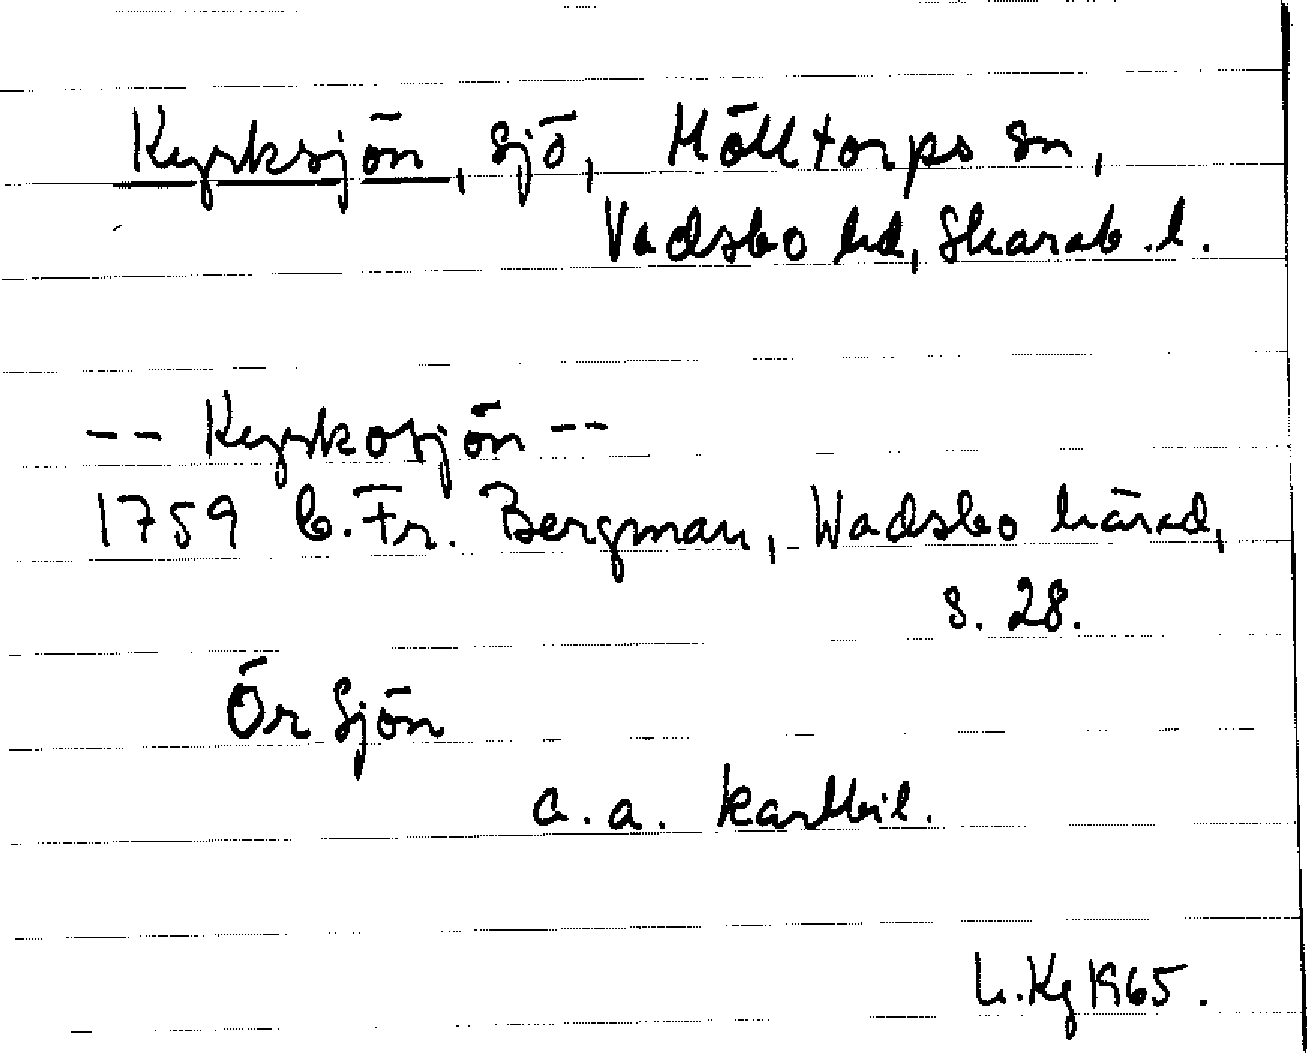 Kyrksjön, sjö, Mölltorps sn,
Vadsbo hd, Skarab.l.
-- Kyrkosjön --
1759 C.Fr. Bergman, Wadsbo härad,
s. 28.
Ör Sjön
a.a. kartbil.
L.Kg 1965.